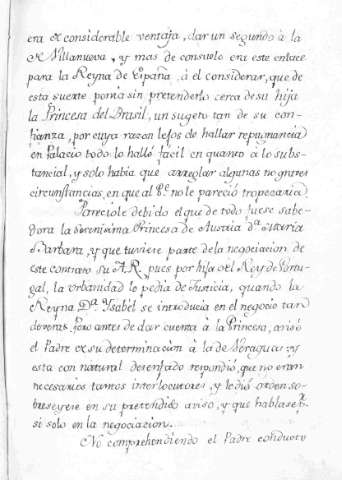 era de considerable ventaja, dar un segundo à la
de Villanueva, y mas de consuelo era este enlace
para la Reyna de España, à el considerar, que de
esta suerte ponia sin pretenderlo cerca de su hija
la Princesa del Brasil, un sugeto tan de su con-
fianza, por cuya razon lejos de hallar repugnancia
en Palacio todo lo halló facil en quanto à lo subs-
tancial, y solo habia que arreglar algunas no graves
circunstancias, en que al Pe. no le pareció tropezaria.
Parecióle debido el que de todo fuese sabe-
dora la Serenisima Princesa de Asturias Da. Maria
Barbara, y que tuviese parte de la negociacion de
este contrato su A.R. pues por hija del Rey de Portu-
gal, la urbanidad lo pedia de Justicia, quando la
Reyna Da. Ysabel se introducia en el negocio tan
deveras, pero antes de dar cuenta à la Princesa, avisó
el Padre de su determinacion à la de Veragua; y
esta con natural desenfado respondió, que no eran
necesarios tantos interlocutores, y le dió orden so-
breseyese en su pretendido aviso, y que hablase pr.
si solo en la negociacion.
No comprehendiendo el Padre conducto